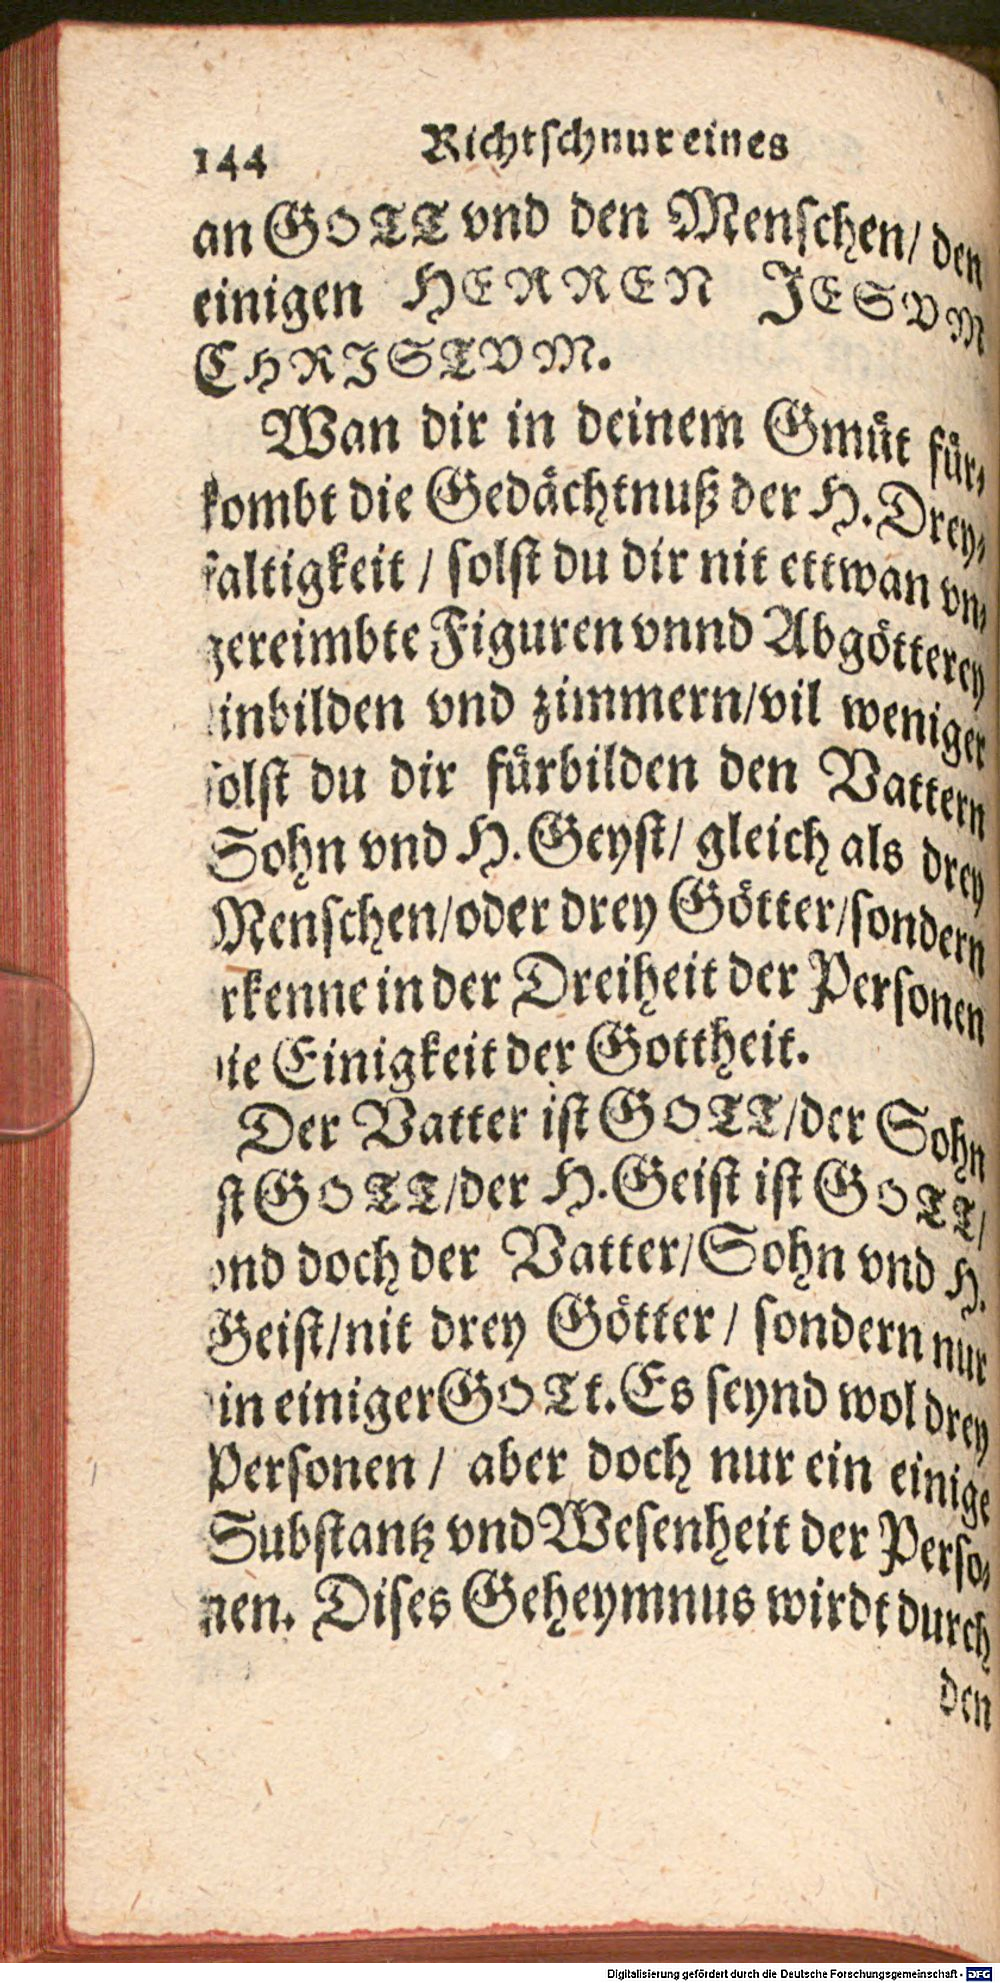 144 Richtschnur eines
an GOTT vnd den Menschen/ den
einigen HERREN JESVM
CHRISTVM.
Wan dir in deinem Gmüt für-
kombt die Gedächtnuß der H. Drey-
faltigkeit / solst du dir nit ettwan vn-
gereimbte Figuren vnnd Abgötterey
inbilden vnd zimmern/vil weniger
solst du dir fürbilden den Vattern
Sohn vnd H. Geyst/ gleich als drey
Menschen/oder drey Götter/sondern
rkenne in der Dreiheit der Personen
die Einigkeit der Gottheit.
Der Vatter ist GOTT/der Sohn
st GOTT/der H. Geist ist GOTT/
vnd doch der Vatter/Sohn vnd H.
Geist/nit drey Götter / sondern nur
in einiger GOTt. Es seynd wol drey
Personen / aber doch nur ein einige
Substantz vnd Wesenheit der Perso-
nen. Dises Geheymnus wirdt durch
den
Digitalisierung gefördert durch die Deutsche Forschungsgemeinschaft - DFG